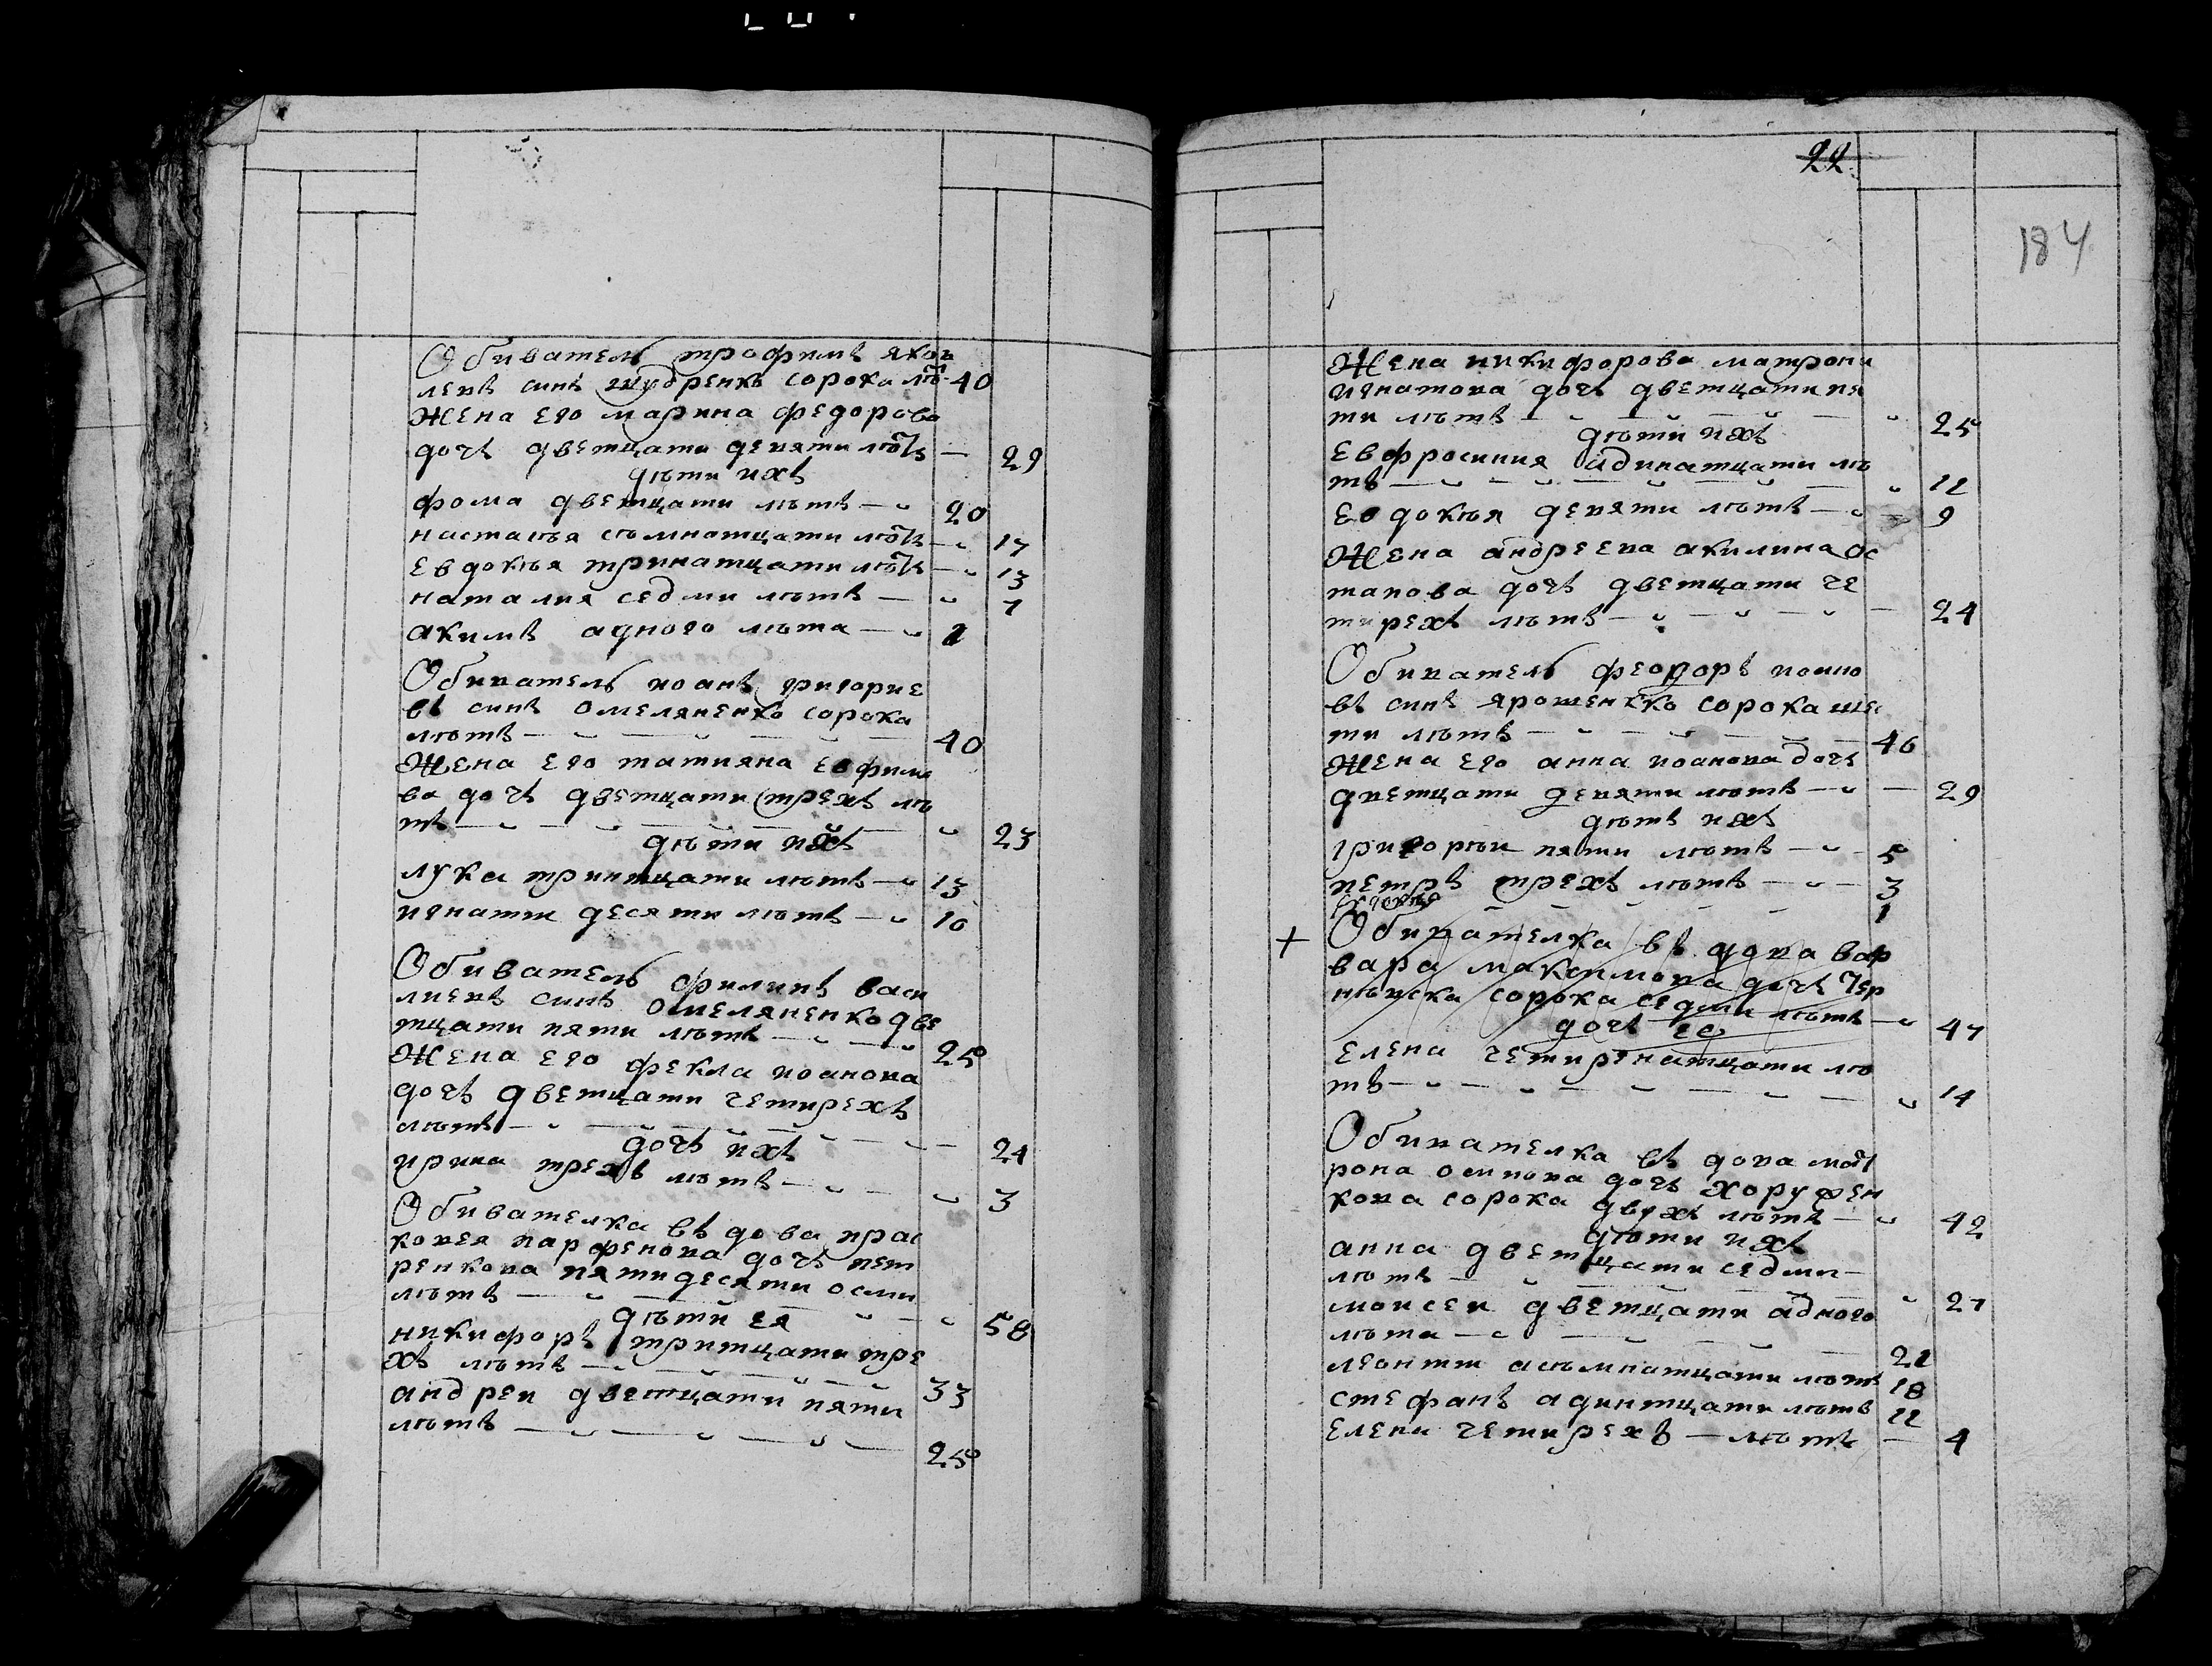 Обиватель трофимъ яков
левъ синъ сорока лѣ 40
Жена его марина федорова
дочъ дветцати девяти лѣтъ — 29
дѣти ихъ
фома дветцати лѣтъ — 20
настасѣя сѣмнатцати лѣтъ — 17
евдокѣя тринатцати лѣтъ — 13
наталия седми лѣтъ — 7
акимъ адного лѣта — 1
Обиватель иоанъ григорие
въ синъ омеляненко сорока
лѣтъ — 40
Жена его татияна евфимо
ва дочъ дветцати трехъ лѣ
тъ — 23
дѣти ихъ
лука тринтцати лѣтъ — 13
игнатии десяти лѣтъ — 10
Обиватель филипъ васи
лиевъ синъ омеляненко две
тцати пяти лѣтъ — 25
Жена его фекла иоанова
дочъ дветцати четирехъ
лѣтъ — 24
дочъ ихъ
ирина трехъ лѣтъ — 3
Обивателка въдова прас
ковея парфенова дочъ пет
ренкова пятидесяти осми
лѣтъ — 58
дѣти ея
никифоръ тритцати тре
хъ лѣтъ — 33
андреи дветцати пяти
лѣтъ — 25
22
184
Жена никифорова матрона
игнатова дочъ дветцати пя
ти лѣтъ — 25
дѣти ихъ
евфросиния адинатцати лѣ
тъ — 11
евдокѣя девяти лѣтъ — 9
Жена андреева акилина ос
тапова дочъ дветцати че
тирехъ лѣтъ — 24
Обиватель феодоръ иоано
въ синъ ярошенко сорока шес
ти лѣтъ — 46
Жена его анна иоанова дочъ
дветцати девяти лѣтъ — 29
дѣтъ ихъ
григорѣи пяти лѣтъ — 5
петръ трехъ лѣтъ — 3
1
+ Обивателка въдова вар
вара максимова дочъ Чер
нѣвска сорока седми лѣтъ — 47
дочъ ее
елена четиренатцати лѣ
тъ — 14
Обивателка въдова мат
рона осипова дочъ хоружен
кова сорока двухъ лѣтъ — 42
дѣти ихъ
анна дветцати седми
лѣтъ — 27
моисеи дветцати адного
лѣта — 21
леонтии асѣмнатцати лѣтъ 18
стефанъ адинтцати лѣтъ 11
елена четирехъ — лѣтъ — 4